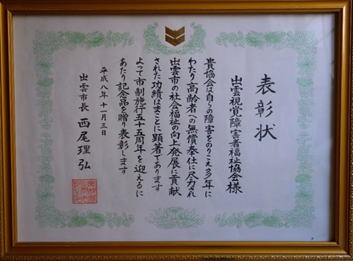 表彰状
出雲視覚障害者福祉協会様
貴協会は自らの障害をのりこえ多年に
わたり高齢者への無償奉仕に尽力され
出雲市の社会福祉の向上発展に貢献
された功績はまことに顕著であります
よって市制施行五十五周年を迎えるに
あたり記念品を贈り表彰します
平成八年十一月三日
出雲市長 西尾理弘